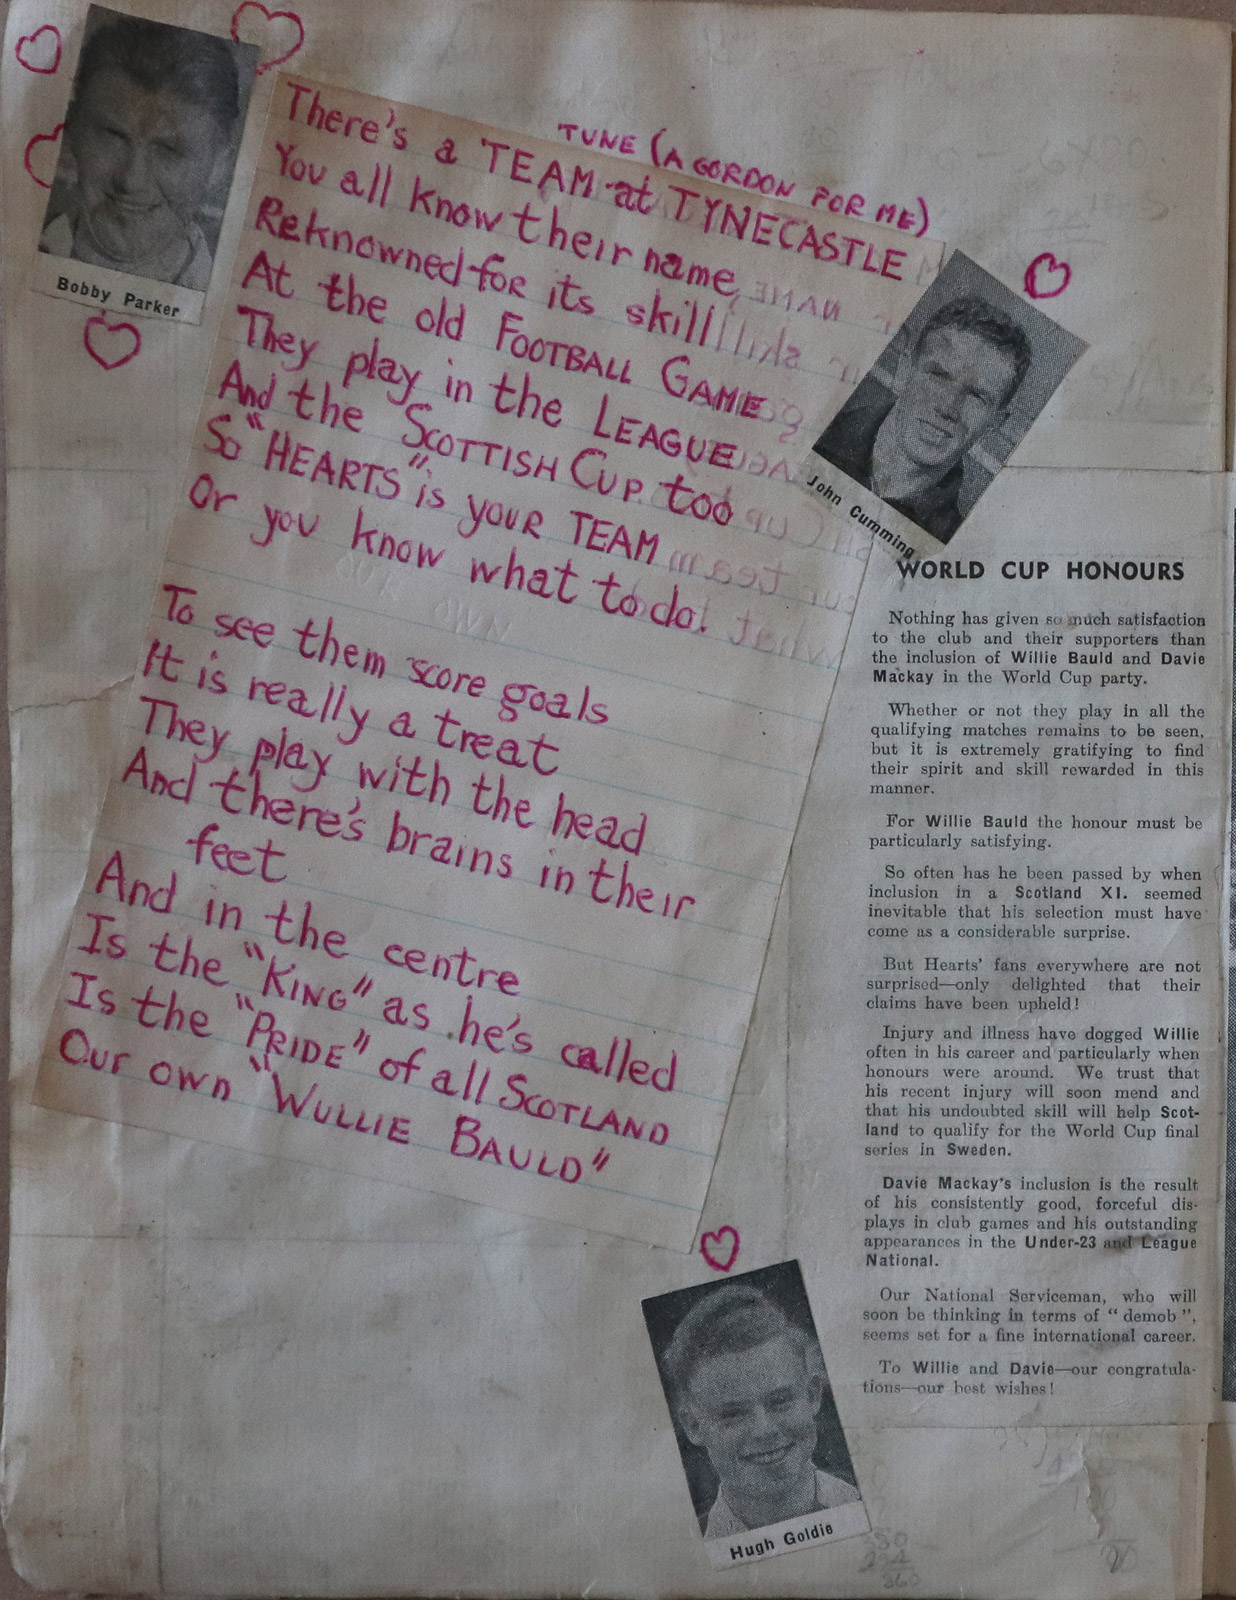 Bobby Parker
TUNE (A GORDON FOR ME)
There's a TEAM at TYNECASTLE
You all know their name,
Reknowned for its skill
At the old FOOTBALL GAME
They play in the LEAGUE
And the SCOTTISH CUP too
So "HEARTS" is your TEAM
Or you know what to do!
To see them score goals
It is really a treat
They play with the head
And there's brains in their
feet
And in the centre
Is the "KING" as he's called
Is the "PRIDE" of all SCOTLAND
Our own "WULLIE BAULD"
John Cumming
WORLD CUP HONOURS
Nothing has given so much satisfaction
to the club and their supporters than
the inclusion of Willie Bauld and Davie
Mackay in the World Cup party.
Whether or not they play in all the
qualifying matches remains to be seen,
but it is extremely gratifying to find
their spirit and skill rewarded in this
manner.
For Willie Bauld the honour must be
particularly satisfying.
So often has he been passed by when
inclusion in a Scotland XI. seemed
inevitable that his selection must have
come as a considerable surprise.
But Hearts' fans everywhere are not
surprised—only delighted that their
claims have been upheld!
Injury and illness have dogged Willie
often in his career and particularly when
honours were around. We trust that
his recent injury will soon mend and
that his undoubted skill will help Scot-
land to qualify for the World Cup final
series in Sweden.
Davie Mackay's inclusion is the result
of his consistently good, forceful dis-
plays in club games and his outstanding
appearances in the Under-23 and League
National.
Our National Serviceman, who will
soon be thinking in terms of "demob",
seems set for a fine international career.
To Willie and Davie—our congratula-
tions—our best wishes!
Hugh Goldie